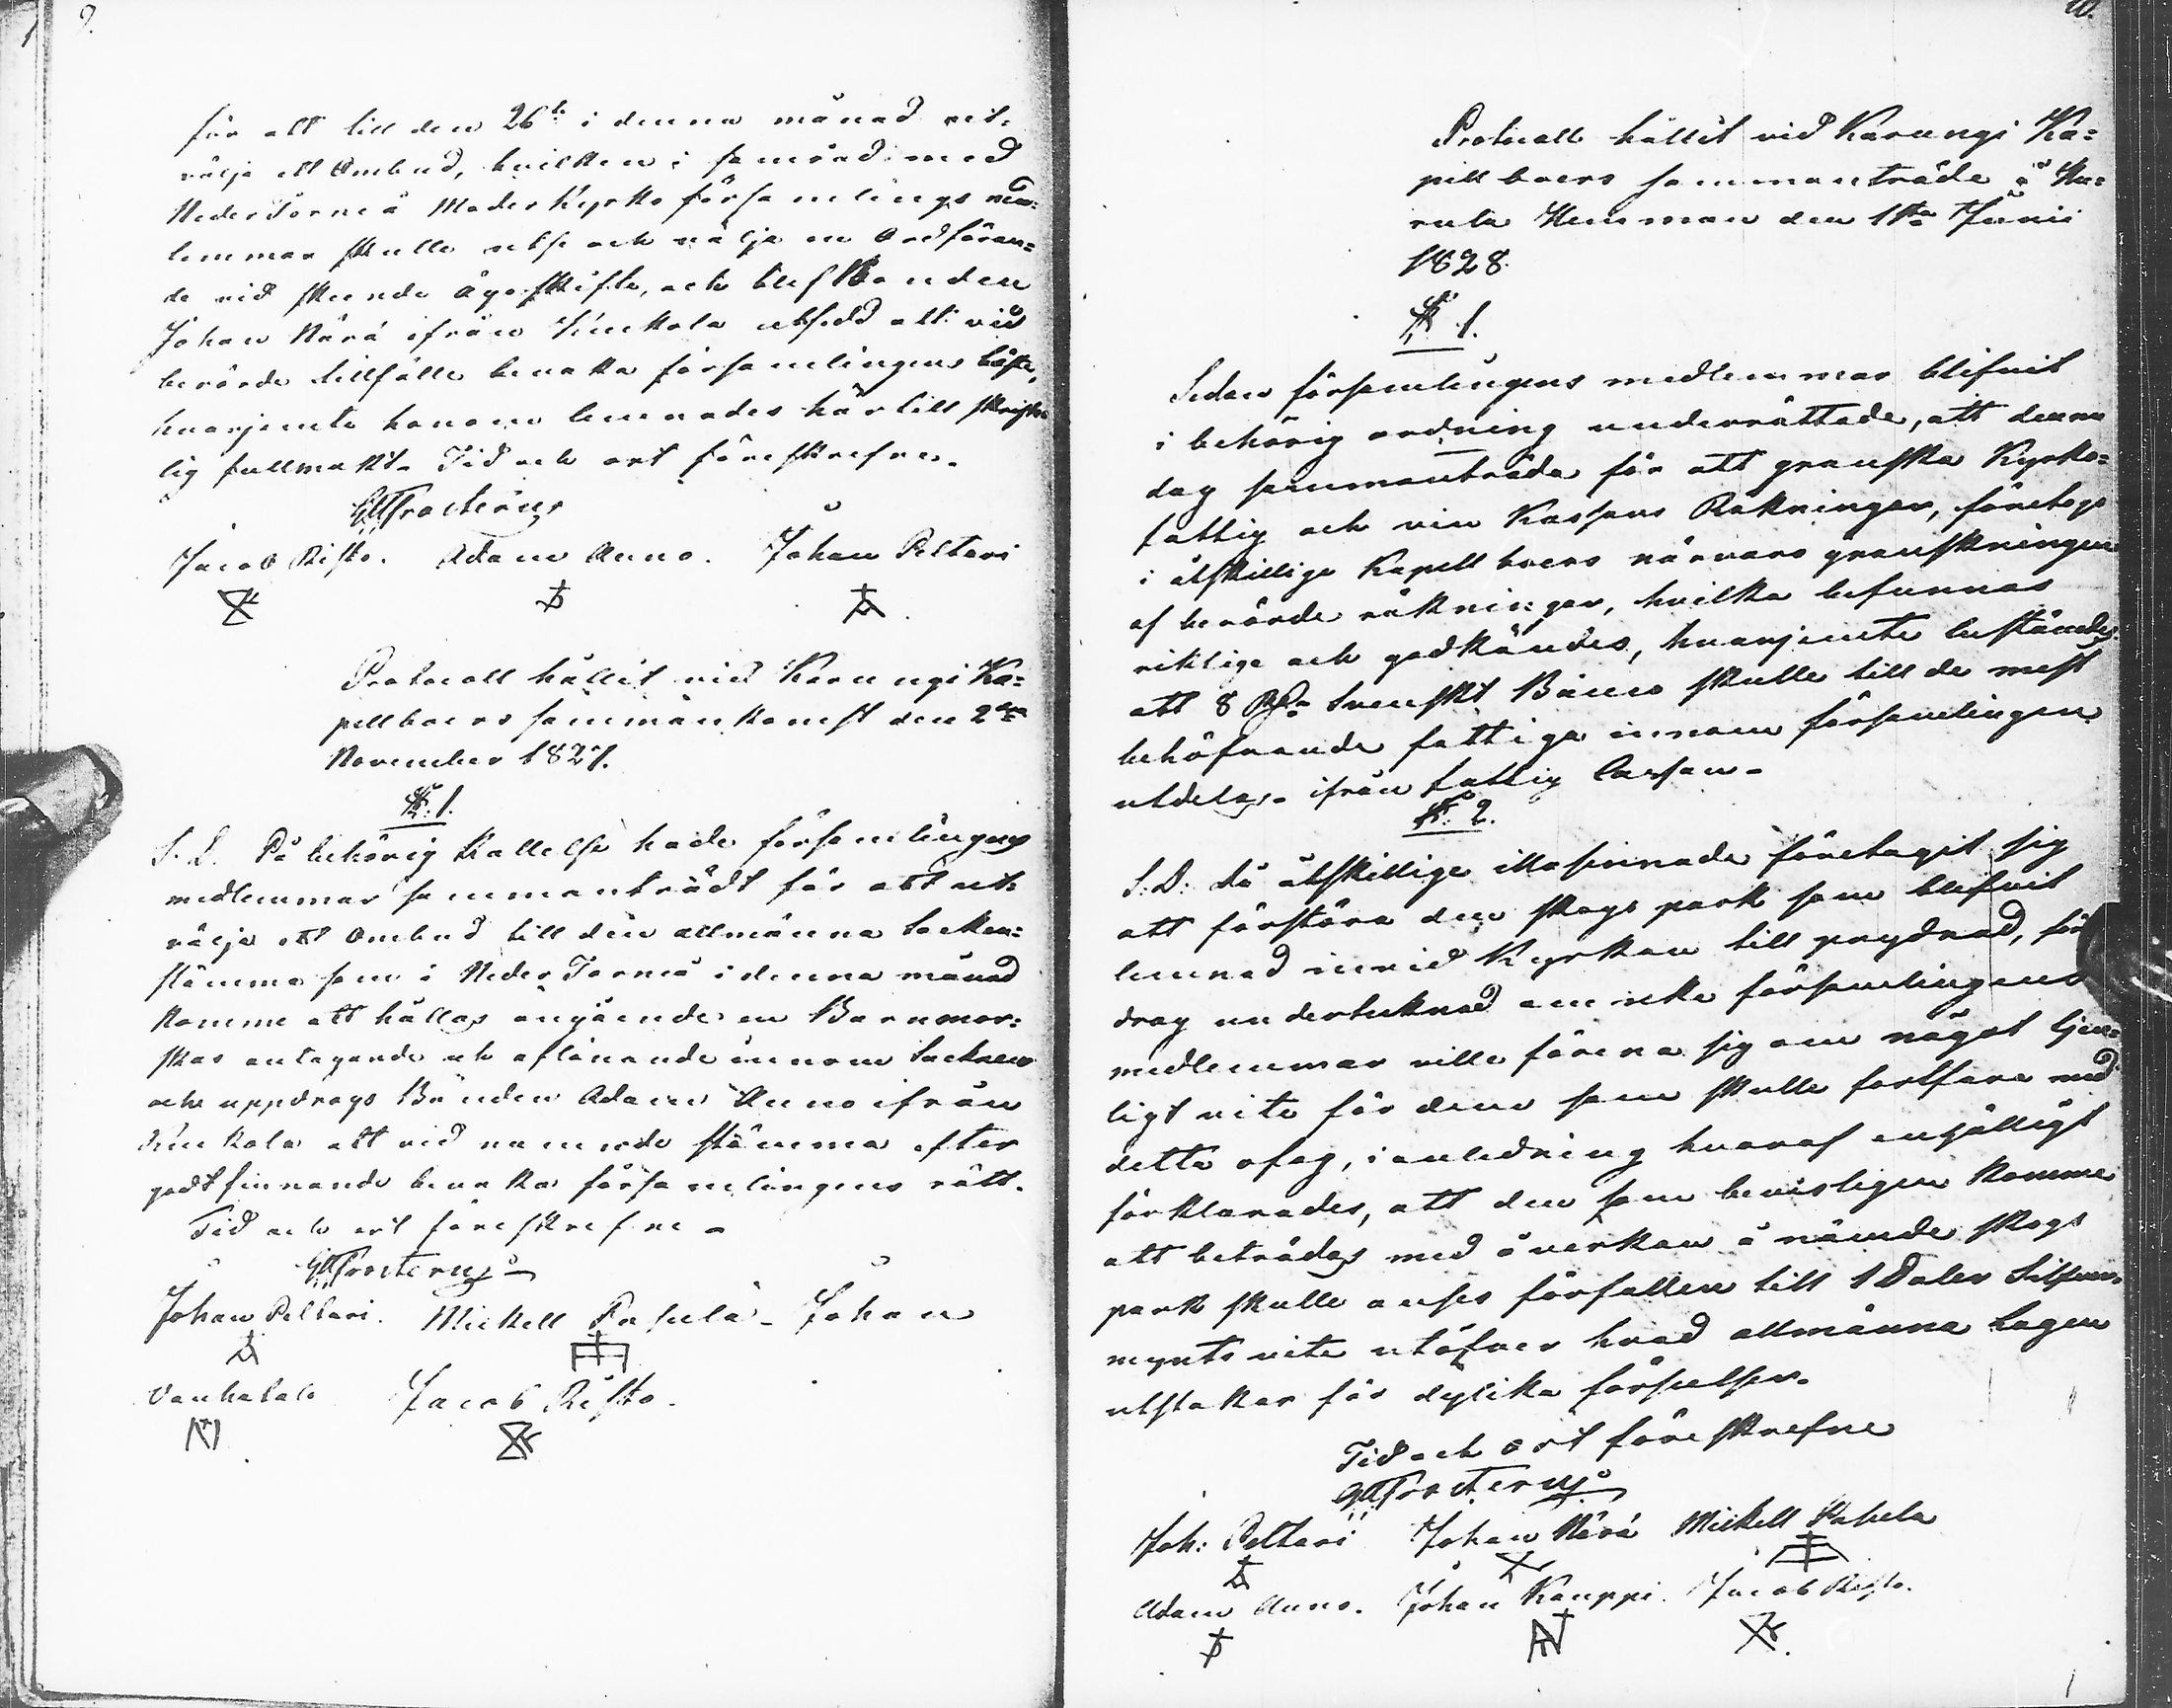 9.
för att till den 26te i denna månad ut-
välja ett Ombud, hvilken i samråd med
Neder Torneå Moder Kyrko församlings med-
lemmar skulle utse och välja en Ordföran-
de vid skeende Ägoskifte, och blef Bonden
Johan Närä ifrån Kuckola utsedd att vid
berörde tillfälle bevaka församlingens bästa,
hvarjemte honom lemnades härtill skrift-
lig fullmakt. Tid och ort föreskrefne.
Frosterus
Jacob Risto. Adam Auno. Johan Peltari
Protocoll hållit vid Karungi Ka-
pellboers sammankomst den 2dra
November 1827.
§. 1.
S. D. På behörig Kallelse hade församlingens
medlemmar sammanträdt för att ut-
välja ett Ombud till den allmänna Socken-
stämma som i Neder Torneå i denna månad
komme att hållas angående en Barnmor-
skas antagande och aflönande innom Socknen
och uppdrogs Bonden Adam Auno ifrån
Kuckola att vid nämnde stämma efter
godtfinnande bevaka församlingens rätt.
Tid och ort föreskrefne.
Frosterus
Johan Peltari. Mickell Papula. Johan
Vanhatalo Jacob Risto.
10.
Protocoll hållit vid Karungi Ka-
pellboers sammanträde å
Hemman den 1sta Junii
1828.
§ 1.
Sedan församlingens medlemmar blifvit
i behörig ordning underrättade, att denna
dag sammanträda för att granska Kyrko-
fattig och vin Kassans Räkningar, företogs
i åtskillige Kapellboers närvaro granskningen
af berörde räkningar, hvilka befunnos
riktige och godkändes, hvarjemte bestämdes
att 8 Rdr Svenskt Banco skulle till de mest
behöfvande fattiga innom församlingen
utdelas ifrån fattig Cassan.
§. 2.
S. D. Då åtskillige illasinnade företagit sig
att förstöra den skogs park som blifvit
lemnad invid Kyrkan till prydnad, före-
drog undertecknad om icke församlingens
medlemmar ville förena sig om något tjen-
ligt vite för dem som skulle fortfara med
detta ofog, i anledning hvaraf enhälligt
förklarades, att den som bevisligen komme
att beträdas med åverkan å nämde skogs
park skulle anses förfallen till 1 Daler Silfver-
mynts vite utöfver hvad allmänna Lagen
utstakar för dylika förseelser.
Tid och ort föreskrefne
Frosterus
Joh: Peltari Johan Närä Mickell Papula
Adam Auno. Johan Kauppi. Jacob Risto.